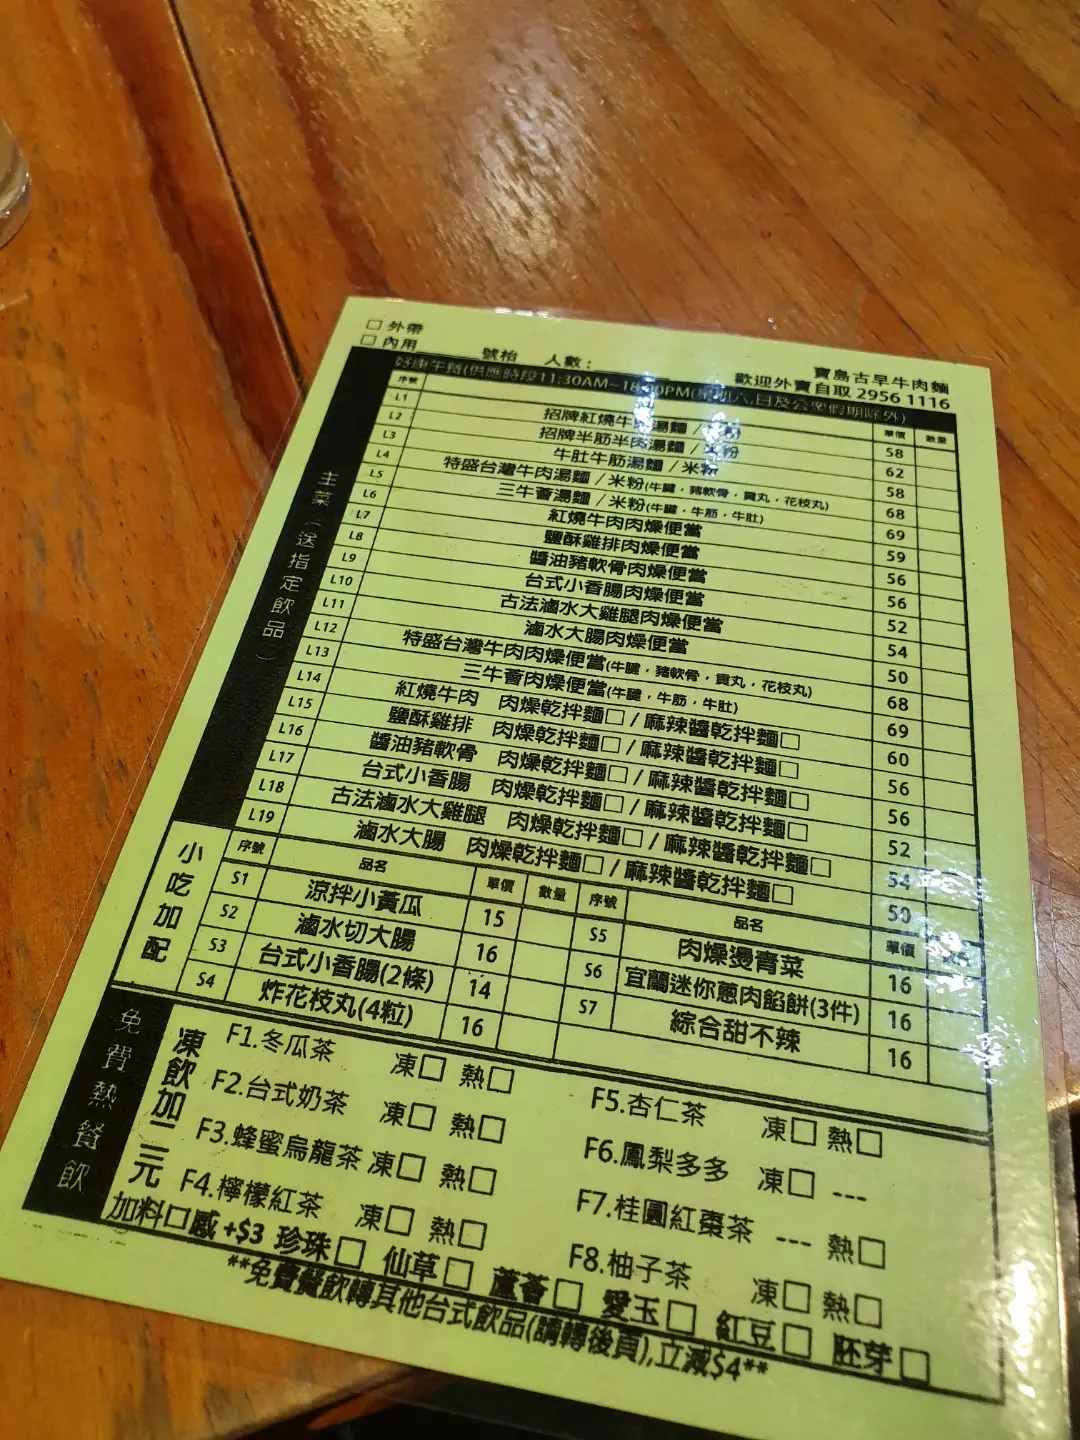 □ 外帶
□ 內用
號枱 人數：
寶島古早牛肉麵
歡迎外賣自取 2956 1116
好康午餐(供應時段11:30AM~18: PM(星期六,日及公眾假期除外)
主菜（送指定飲品）
序號 單價 數量
L1 招牌紅燒牛 湯麵 / 粉 58
L2 招牌半筋半肉湯麵 / 米粉 62
L3 牛肚牛筋湯麵 / 米粉 58
L4 特盛台灣牛肉湯麵 / 米粉(牛腱，豬軟骨，貢丸，花枝丸) 68
L5 三牛薈湯麵 / 米粉(牛腱，牛筋，牛肚) 69
L6 紅燒牛肉肉燥便當 59
L7 鹽酥雞排肉燥便當 56
L8 醬油豬軟骨肉燥便當 56
L9 台式小香腸肉燥便當 52
L10 古法滷水大雞腿肉燥便當 54
L11 滷水大腸肉燥便當 50
L12 特盛台灣牛肉肉燥便當(牛腱，豬軟骨，貢丸，花枝丸) 68
L13 三牛薈肉燥便當(牛腱，牛筋，牛肚) 69
L14 紅燒牛肉 肉燥乾拌麵□ / 麻辣醬乾拌麵□ 60
L15 鹽酥雞排 肉燥乾拌麵□ / 麻辣醬乾拌麵□ 56
L16 醬油豬軟骨 肉燥乾拌麵□ / 麻辣醬乾拌麵□ 56
L17 台式小香腸 肉燥乾拌麵□ / 麻辣醬乾拌麵□ 52
L18 古法滷水大雞腿 肉燥乾拌麵□ / 麻辣醬乾拌麵□ 54
L19 滷水大腸 肉燥乾拌麵□ / 麻辣醬乾拌麵□ 50
小吃加配
序號 品名 單價 數量 序號 品名 單價
S1 涼拌小黃瓜 15 S5 肉燥燙青菜 16
S2 滷水切大腸 16 S6 宜蘭迷你蔥肉餡餅(3件) 16
S3 台式小香腸(2條) 14 S7 綜合甜不辣 16
S4 炸花枝丸(4粒) 16
免費熱餐飲
凍飲加二元
F1.冬瓜茶 凍□ 熱□ F5.杏仁茶 凍□ 熱□
F2.台式奶茶 凍□ 熱□ F6.鳳梨多多 凍□ ---
F3.蜂蜜烏龍茶 凍□ 熱□ F7.桂圓紅棗茶 --- 熱□
F4.檸檬紅茶 凍□ 熱□ F8.柚子茶 凍□ 熱□
加料口感 +$3 珍珠□ 仙草□ 蘆薈□ 愛玉□ 紅豆□ 胚芽□
**免費餐飲轉其他台式飲品(請轉後頁),立減$4**